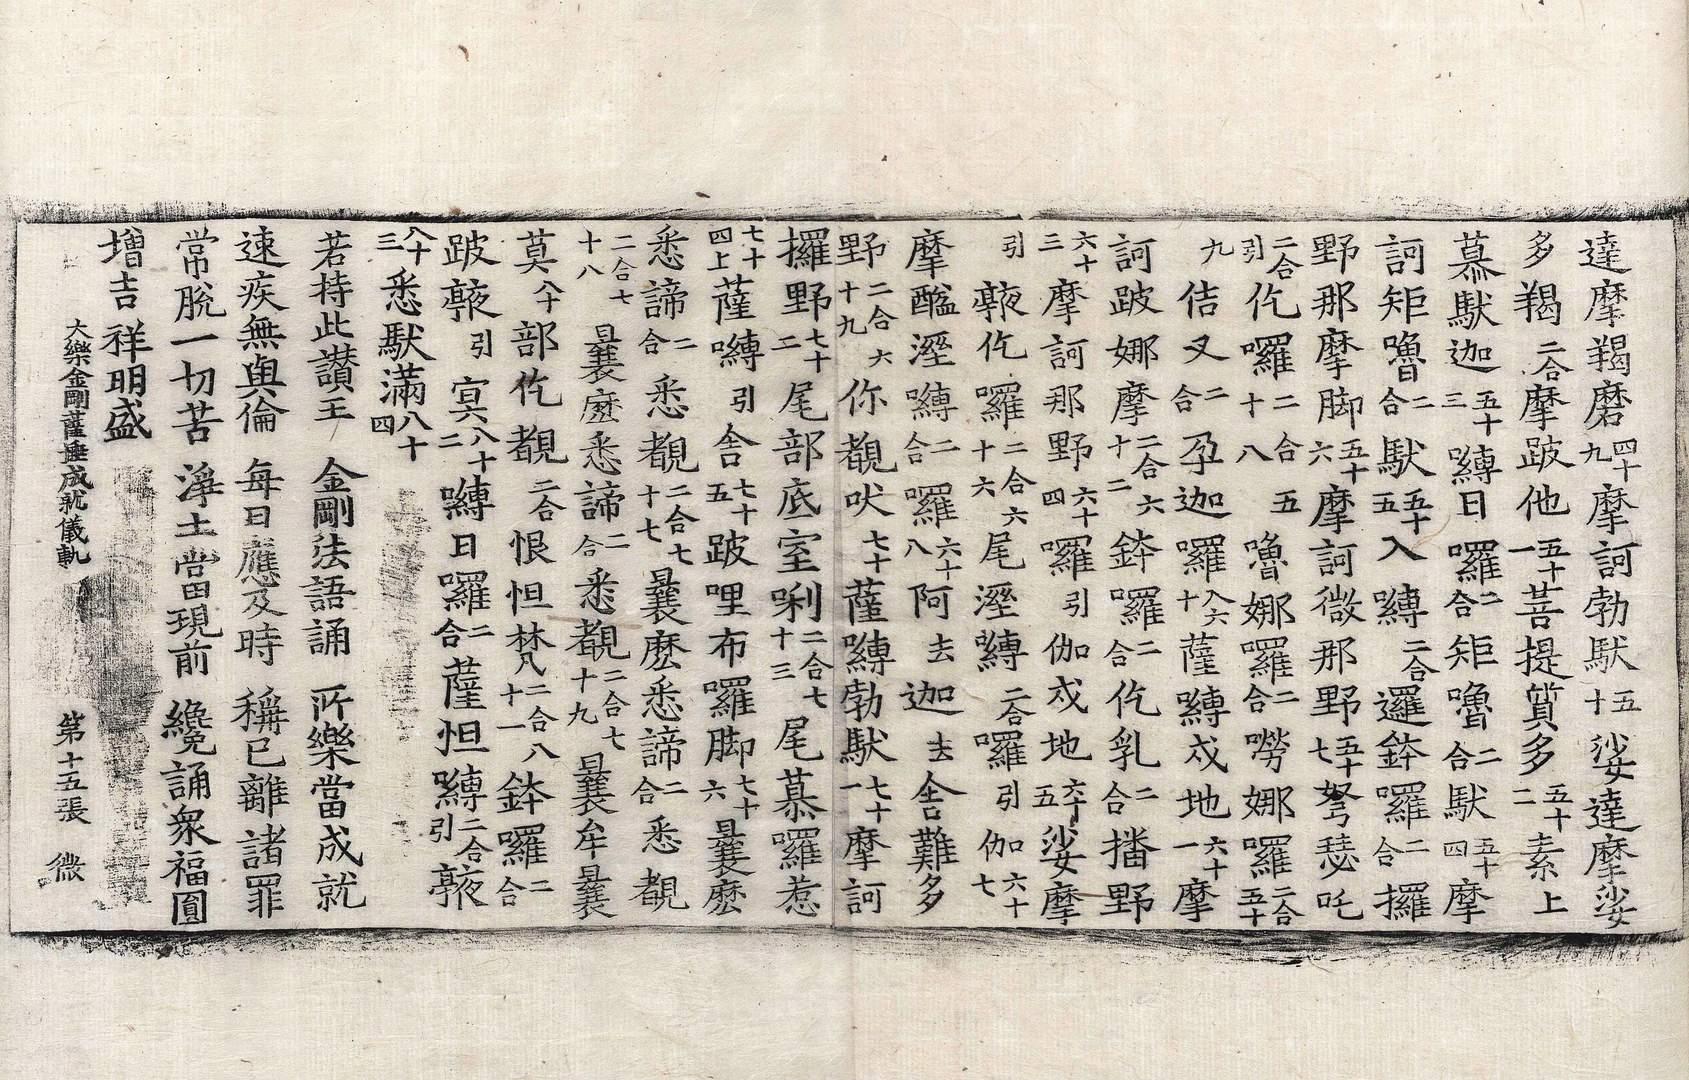 達摩羯磨四十九摩訶勃馱五十娑達摩娑
多羯二合摩跛他五十一菩提質多五十二素上
慕馱迦五十三嚩日囉二合矩嚕二合馱五十四摩
訶矩嚕二合馱五十五入嚩二合邏鉢囉二合攞
野那摩脚五十六摩訶微那野五十七弩瑟吒
二合引仡囉二合五十八嚕娜囉二合嘮娜囉二合五十
九佶叉二合孕迦囉入六十薩嚩戍地六十一摩
訶跛娜摩二合六十二鉢囉二合仡乳二合播野
六十三摩訶那野六十四囉引伽戍地六十五娑摩
引㝹仡囉二合六十六尾溼嚩二合囉引伽六十七
摩醯溼嚩二合囉六十八阿去迦去舍難多
野二合六十九你覩吠七十薩嚩勃馱七十一摩訶
攞野七十二尾部底室唎二合七十三尾慕囉惹
七十四上薩嚩引舍七十五跛哩布囉脚七十六曩麽
悉諦二合悉覩二合七十七曩麽悉諦二合悉覩
二合七十八曩麽悉諦二合悉覩二合七十九曩牟曩
莫八十部仡覩二合恨怛梵二合八十一鉢囉二合
跛㝹引寞八十二嚩日囉二合薩怛嚩二合引㝹
八十三悉馱滿八十四
若持此讚王 金剛法語誦 所樂當成就
速疾無與倫 每日應及時 稱已離諸罪
常脫一切苦 淨土當現前 纔誦衆福圓
增吉祥明盛
大樂金剛薩埵成就儀軌 第十五張 微